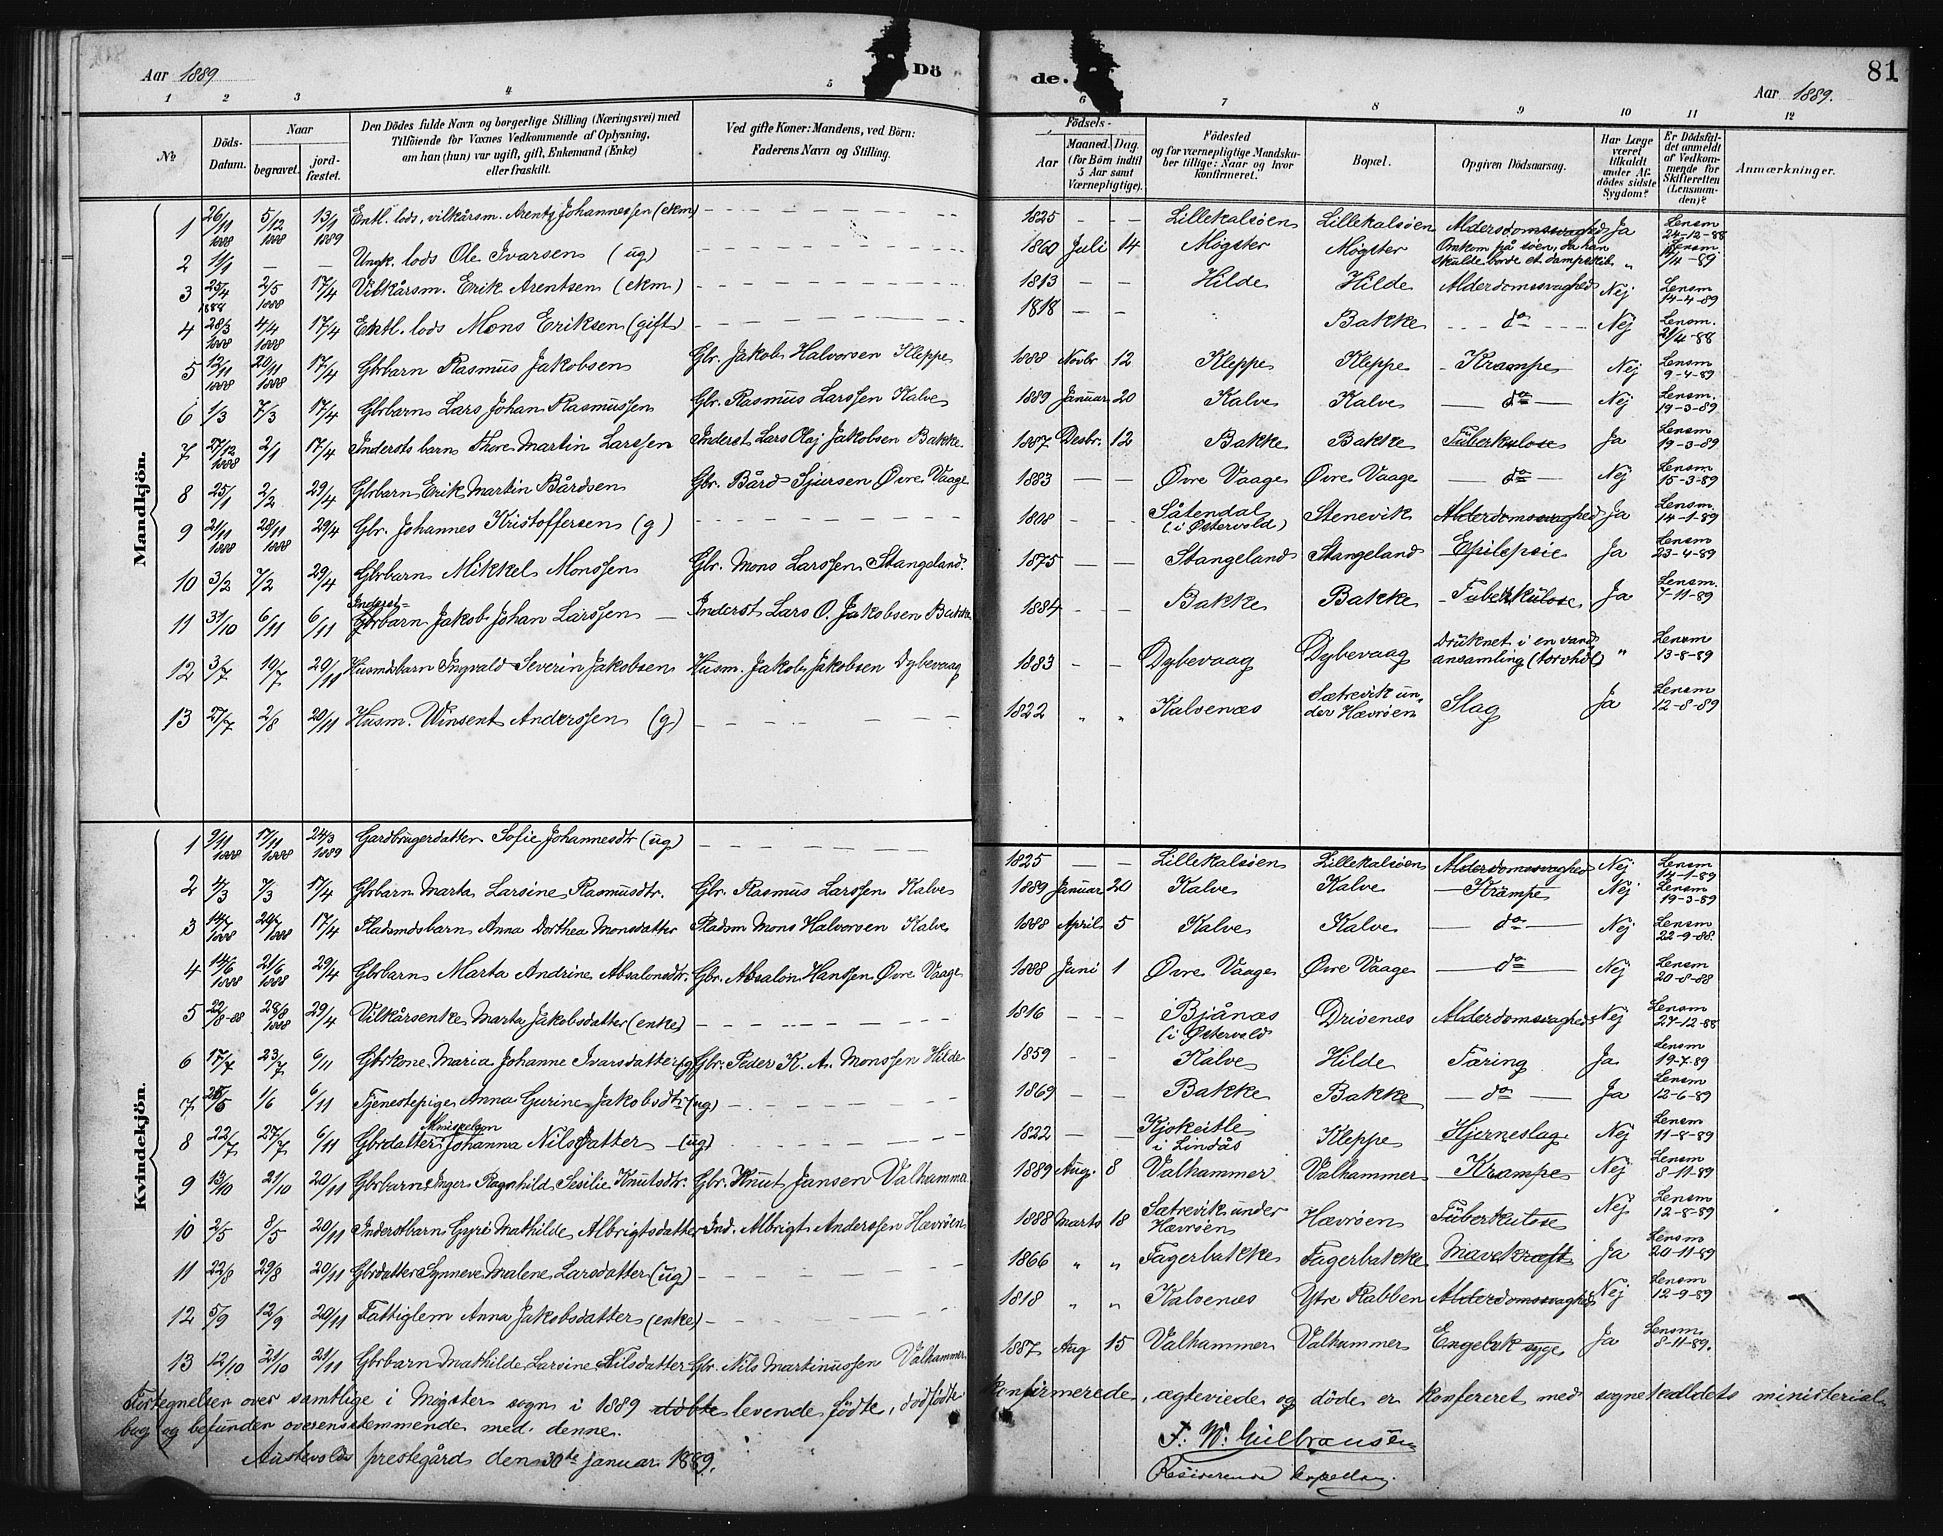 Aar 1889 Dö de. Aar 1889. 81
1 2 3 4 5 6 7 8 9 10 11 12
№ Döds-Datum. Naar begravet. jord-fæstet. Den Dödes fulde Navn og borgerlige Stilling (Næringsvei) med Tilföiende for Voxnes Vedkommende af Oplysning, om han (hun) var ugift, gift, Enkemand (Enke) eller fraskilt. Ved gifte Koner: Mandens, ved Börn: Faderens Navn og Stilling. Födsels- Aar Maaned. Dag. (for Börn indtil 5 Aar samt Værnepligtige). Födested og for værnepligtige Mandskaber tillige: Naar og hvor konfirmeret. Bopæl. Opgiven Dödsaarsag. Har Læge været tilkaldt under Afdödes sidste Sygdom? Er Dödsfaldet anmeldt af Vedkommende for Skifteretten (Lensmanden)? Anmærkninger.
Mandkjön.
1 26/11 1888 5/12 1888 13/1 1889 Entl. lods, vilkårsm. Arentz Johannessen (ekm) 1825 Lillekalsöen Lillekalsöen Alderdomssvaghed Ja Lensm 24-12-88
2 11/1 — — Ungk. lods Ole Ivarsen (ug) 1860 Juli 14 Møgster Møgster Omkom på søen, da han skulde borde et dampskib „ Lensm. 1/4-89
3 25/4 1888 2/5 1888 17/4 Vilkårsm. Erik Arentsen (ekm) 1813 Hilde Hilde Alderdomssvaghed Nej Lensm 14-4-89
4 28/3 1888 4/4 1888 17/4 Entl. lods Mons Eriksen (gift) 1818 Bakke do Nej Lensm. 21/4-88
5 12/11 1888 20/11 1888 17/4 Gbrbarn Rasmus Jakobsen Gbr. Jakob Halvorsen Kleppe 1888 Novbr 12 Kleppe Kleppe Krampe Nej Lensm 9-4-89
6 1/3 7/3 17/4 Gbrbarn Lars Johan Rasmussen Gbr. Rasmus Larssen Kalve 1889 Januar 20 Kalve Kalve do Nej Lensm. 19-3-89
7 27/12 1888 2/1 17/4 Inderstsbarn Thore Martin Larssen Inderst Lars Olaj Jakobsen Bakke 1887 Desbr. 12 Bakke Bakke Tüberkulose Ja Lensm 19-3-89
8 25/1 2/2 29/4 Gbrbarn Erik Martin Bårdsen Gbr. Bård Sjursen Øvre Vaage 1883 Øvre Vaage Øvre Vaage do Nej Lensm 15-3-89
9 21/11 1888 28/11 1888 29/4 Gbr. Johannes Kristoffersen (g) 1808 Såtendal (i Østervold) Stenevik Alderdomssvaghed Ja Lensm 14-1-89
10 3/2 7/2 29/4 Gbrbarn Mikkel Monssen Gbr. Mons Larssen Stangeland. 1875 Stangeland Stangeland Epilepsie Ja Lensm 23-4-89
11 31/10 6/11 6/11 Inderst- Gbrbarn Jakob Johan Larssen Inderst Lars O. Jakobsen Bakke 1884 Bakke Bakke Tuberkulose Ja Lensm. 7-11-89
12 3/7 10/7 20/11 Husmdsbarn Ingvald Severin Jakobsen Husm. Jakob Jakobsen Dybevaag 1883 Dybevaag Dybevaag Druknet i en vandansamling (torvhol) „ Lensm 13-8-89
13 27/7 2/8 20/11 Husm. Winsent Anderssen (g) 1822 „ „ Kalvenæs Sætrevik under Hævröen Slag Ja Lensm 12-8-89
Kvindekjön.
1 9/11 1888 17/11 1888 24/3 1889 Gardbrugerdatter Sofie Johannesdtr (ug) 1825 Lillekalsöen Lillekalsöen Alderdomssvaghed Nej Lensm 14-1-89
2 4/3 7/3 17/4 Gbrbarn Marta Larsine Rasmusdtr. Gbr. Rasmus Larssen Kalve 1889 Januar 20 Kalve Kalve Krampe Nej Lensm 19-3-89
3 14/7 1888 20/7 1888 17/4 Pladsmdsbarn Anna Dorthea Monsdatter Pladsm Mons Halvorsen Kalve 1888 April 5 Kalve Kalve do Nej Lensm 22-9-88.
4 14/6 1888 21/6 1888 29/4 Gbrbarn Marta Andrine Absalonsdtr. Gbr. Absalon Hanssen Øvre Vaage 1888 Juni 1 Øvre Vaage Øvre Vaage do Nej Lensm 20-8-88
5 22/8-88 28/8 1888 29/4 Vilkårsenke Marta Jakobsdatter (enke) 1816 Bjånæs (i Østervold) Drivenæs Alderdomssvaghed Nej Lensm 27-12-88
6 17/7 23/7 6/11 Gbrkone Maria Johanne Ivarsdatter (g) Gbr. Peder K. A. Monssen Hilde 1859 Kalve Hilde Tæring Ja Lensm 19-7-89
7 28/5 1/6 6/11 Tjenestepige Anna Gurine Jakobsdtr (ug) 1869 Bakke Bakke do Ja Lensm 12-6-89
8 22/7 27/7 6/11 Gbrdatter Johanna Nilsdatter (ug) 1822 i Lindås Kleppe Hjerneslag Nej Lensm 11-8-89
9 13/10 21/10 20/11 Gbrbarn Inger Ragnhild Sesilie Knutsdtr. Gbr. Knut Jansen Valhammer 1889 Aug. 8 Valhammer Valhammer Krampe Nej Lensm 8-11-89
10 2/5 8/5 20/11 Inderstbarn Gyri Mathilde Albrigtsdatter Ind. Albrigt Anderssen Hævröen 1888 Marts 18 Sætrevik under Hævröen Hævröen Tüberkulose Nej Lensm 12-8-89
11 22/8 29/8 20/11 Gbrdatter Synneve Malene Larsdatter (ug) 1866 „ „ Fagerbakke Fagerbakke Mavekræft Ja Lensm 20-11-89
12 5/9 12/9 20/11 Fattiglem Anna Jakobsdatter (enke) 1818 „ „ Kalvenæs Ytre Rabben Alderdomssvaghed Nej Lensm 12-9-89
13 12/10 21/10 21/11 Gbrbarn Mathilde Larsine Nilsdatter Gbr. Nils Martinussen Valhammer 1887 Aug 15 Valhammer Valhammer Engelsk syge Ja Lensm. 8-11-89.
Fortegnelsen over samtlige i Møgster sogn i 1889 döbte levende fødte, dødfødte konfirmerede, ægteviede og döde er konfereret med sognekaldets ministerial
bog og befunden overensstemmende med denne.
Austevolds prestegård den 30te januar 1889.
F. W. Gulbransen
Residerende kapellan.